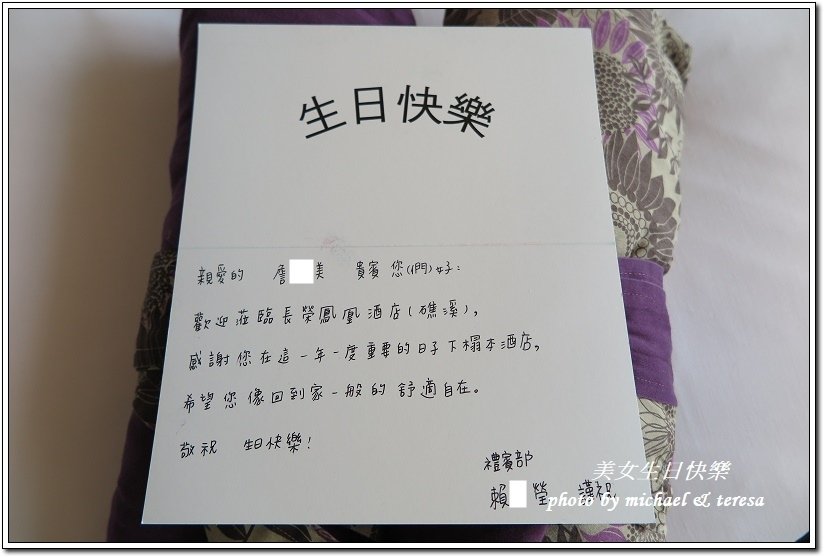 生日快樂
親愛的 詹 美 貴賓 您(們)好:
歡迎蒞臨長榮鳳凰酒店(礁溪),
感謝您在這一年一度重要的日子下榻本酒店,
希望您像回到家一般的舒適自在。
敬祝 生日快樂!
禮賓部
賴 瑩 謹祝
美女生日快樂
photo by michael & teresa